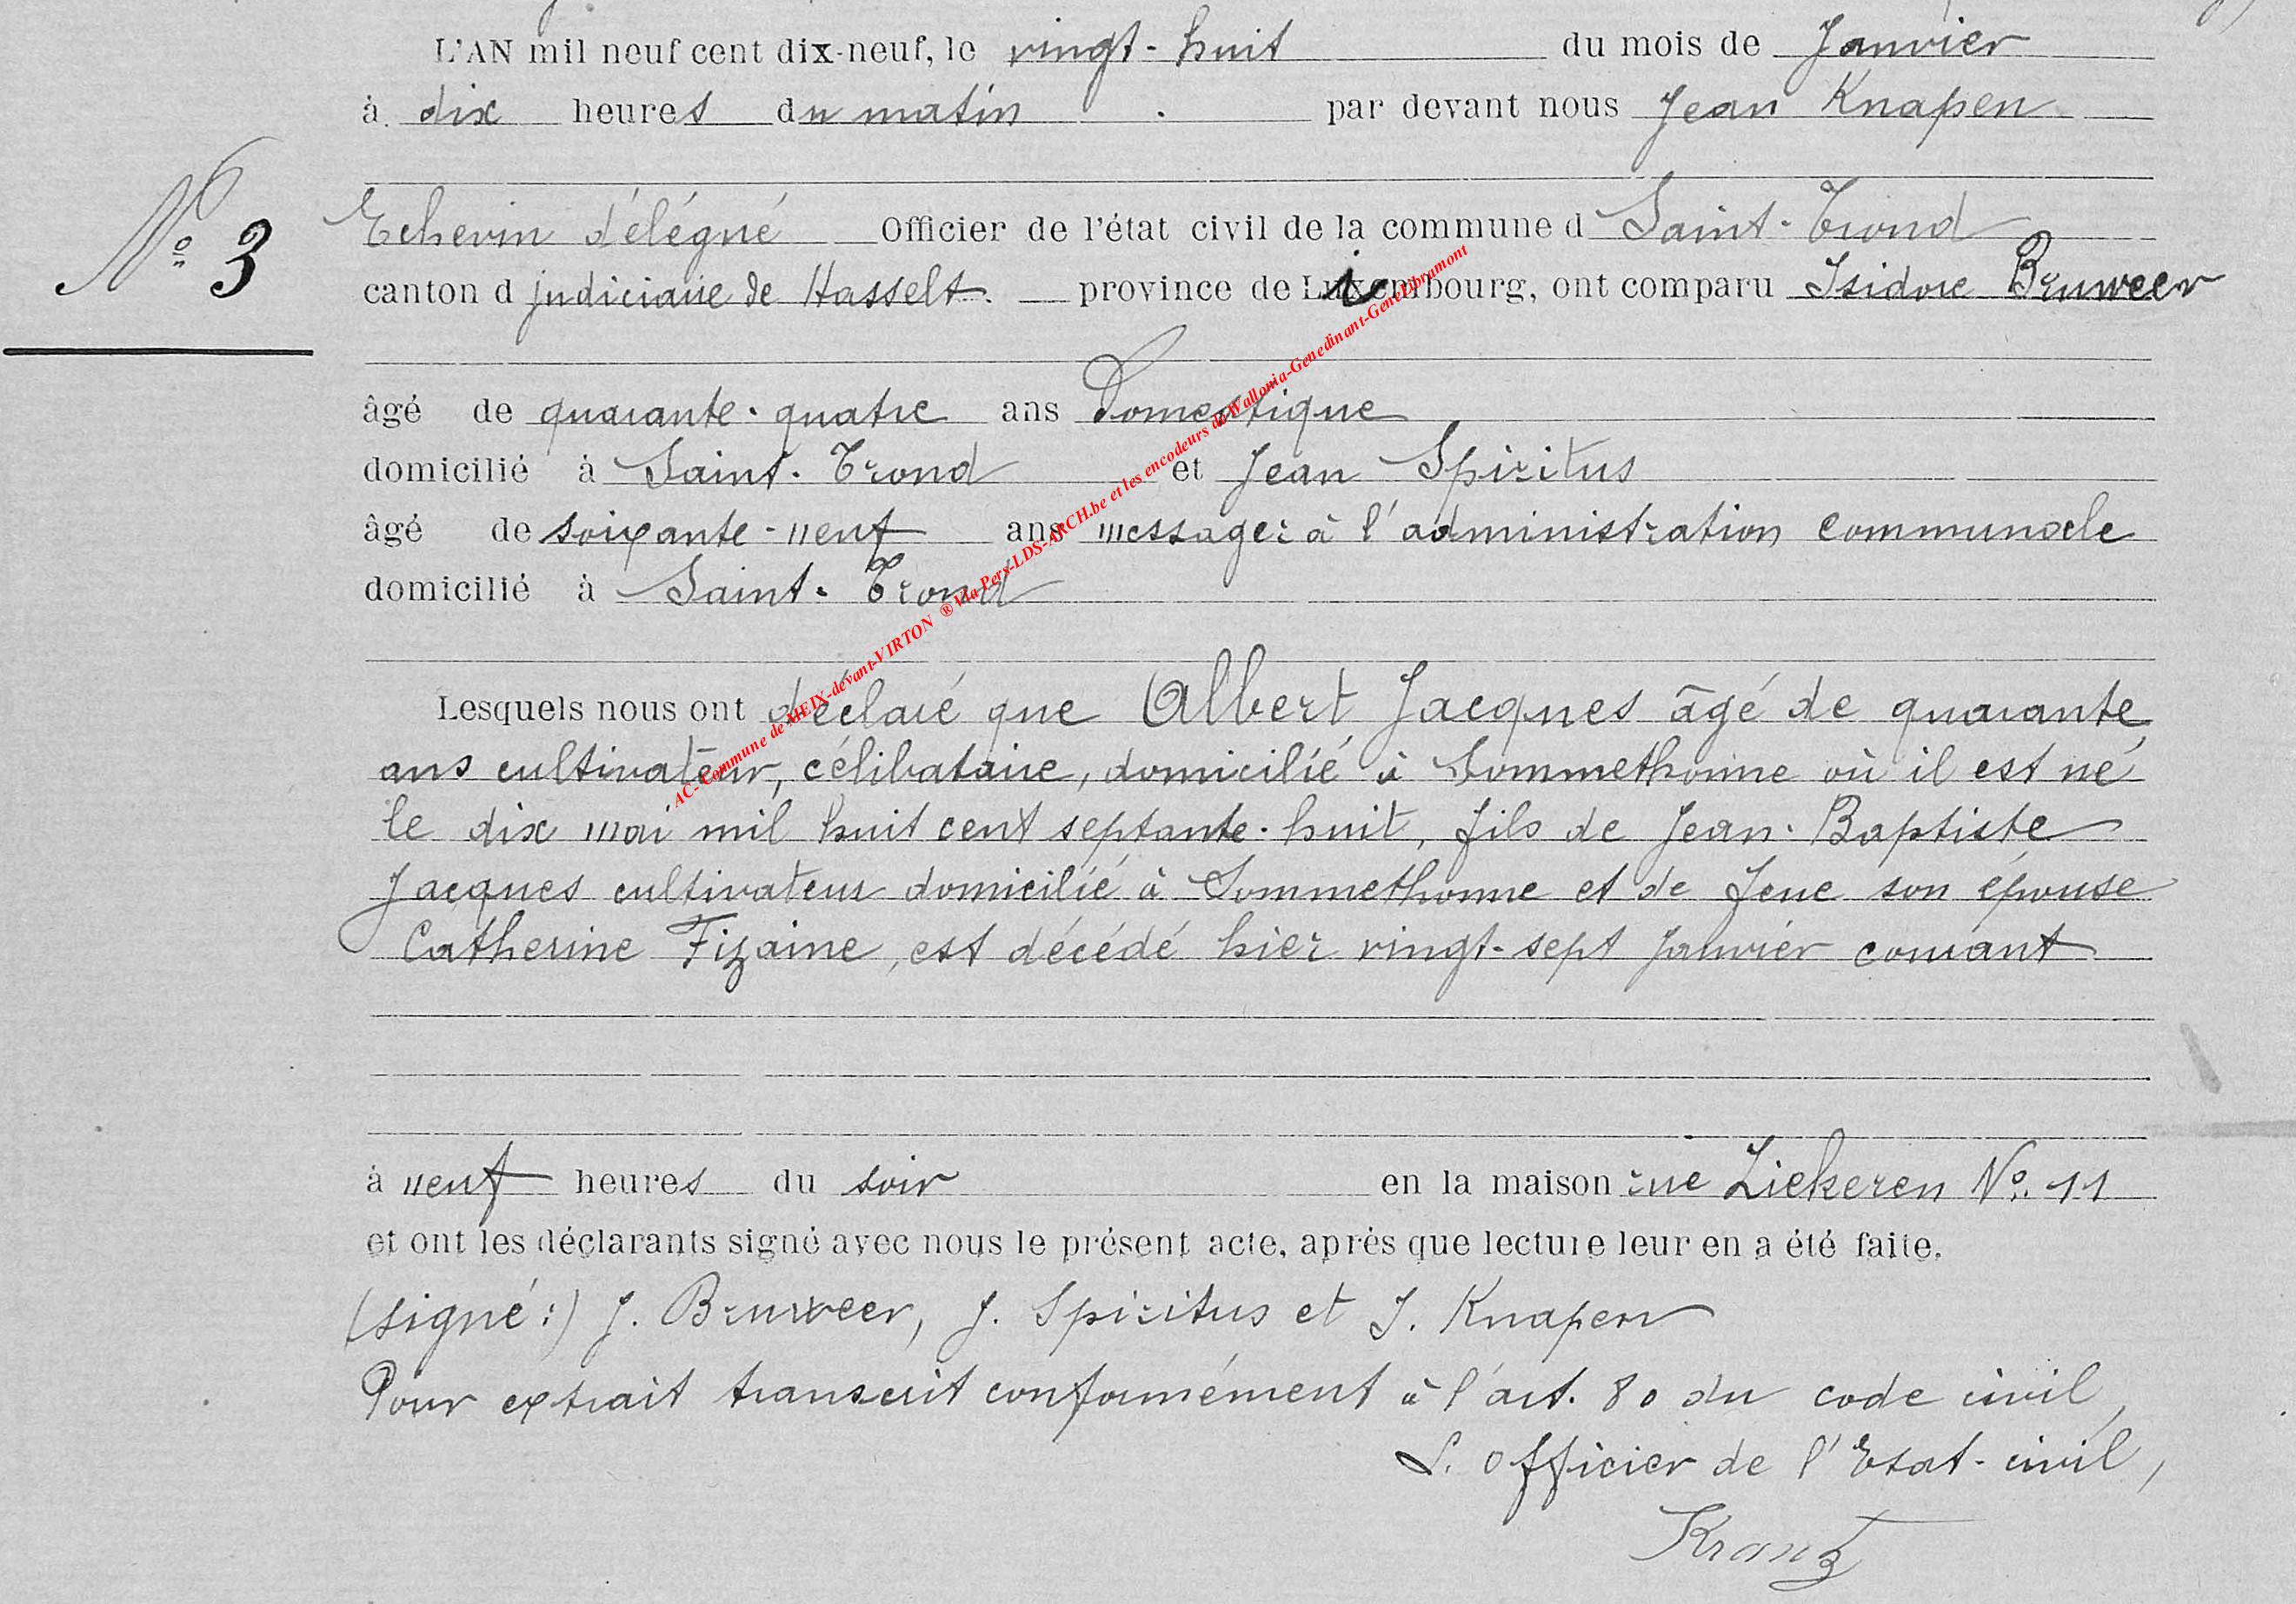 L'AN mil neuf cent dix-neuf, le vingt-huit du mois de Janvier
à dix heures du matin . par devant nous Jean Knapen
Echevin délégué Officier de l'état civil de la commune d Saint-Trond
N° 3
canton d judiciaire de Hasselt. province de Luxembourg, ont comparu Isidore Bruweer
âgé de quarante-quatre ans Domestique
domicilié à Saint-Trond et Jean Spiritus
âgé de soixante-neuf ans messager à l'administration communale
domicilié à Saint-Trond
AC-Commune de MEIX-devant-VIRTON ® Via Pers-LDS-ARCH.be et les encodeurs de Wallonia-Genedinant-GeneLibramont
Lesquels nous ont déclaré que Albert Jacques âgé de quarante
ans cultivateur, célibataire, domicilié à Sommethonne où il est né
le dix mai mil huit cent septante-huit, fils de Jean-Baptiste
Jacques cultivateur domicilié à Sommethonne et de feue son épouse
Catherine Fizaine, est décédé hier vingt-sept Janvier courant
à neuf heures du soir en la maison rue Ziekeren N°. 11
et ont les déclarants signé avec nous le présent acte, après que lecture leur en a été faite.
(signé:) J. Bruweer, J. Spiritus et J. Knapen
Pour extrait transcrit conformément à l'art. 80 du code civil,
L. officier de l'Etat-civil,
Krantz